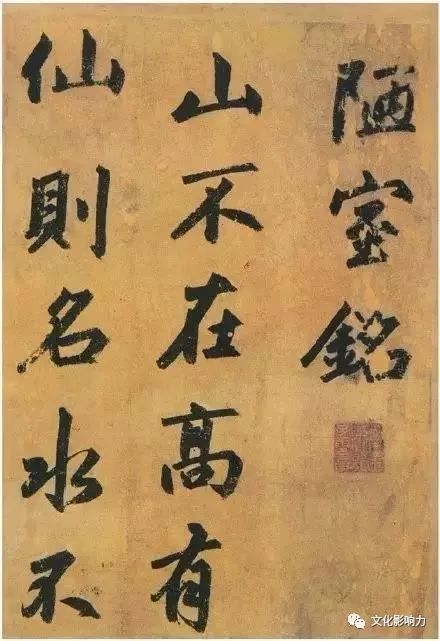 陋室銘
山不在高有
仙則名水不
文化影响力